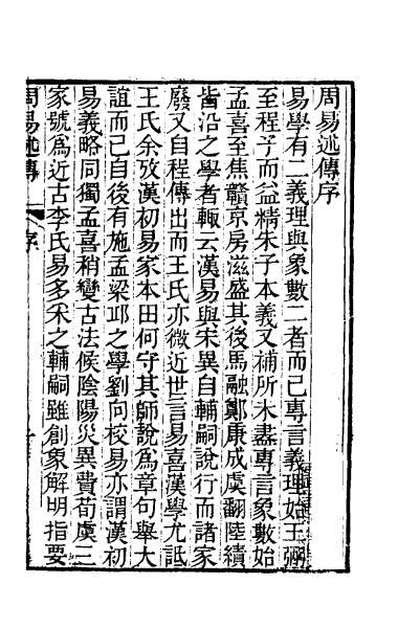 周易述傳序
易學有二義理與象數二者而已專言義理始王弼
至程子而益精朱子本義又補所未盡專言象數始
孟喜至焦贛京房滋盛其後馬融鄭康成虞翻陸績
皆沿之學者輒云漢易與宋異自輔嗣說行而諸家
廢又自程傳出而王氏亦微近世言易喜漢學尤詆
王氏余攷漢初易家本田何守其師說為章句舉大
誼而已自後有施孟梁邱之學劉向校易亦謂漢初
易義略同獨孟喜稍變古法候陰陽災異費荀虞三
家號為近古李氏易多采之輔嗣雖創象解明指要
周易述傳 序